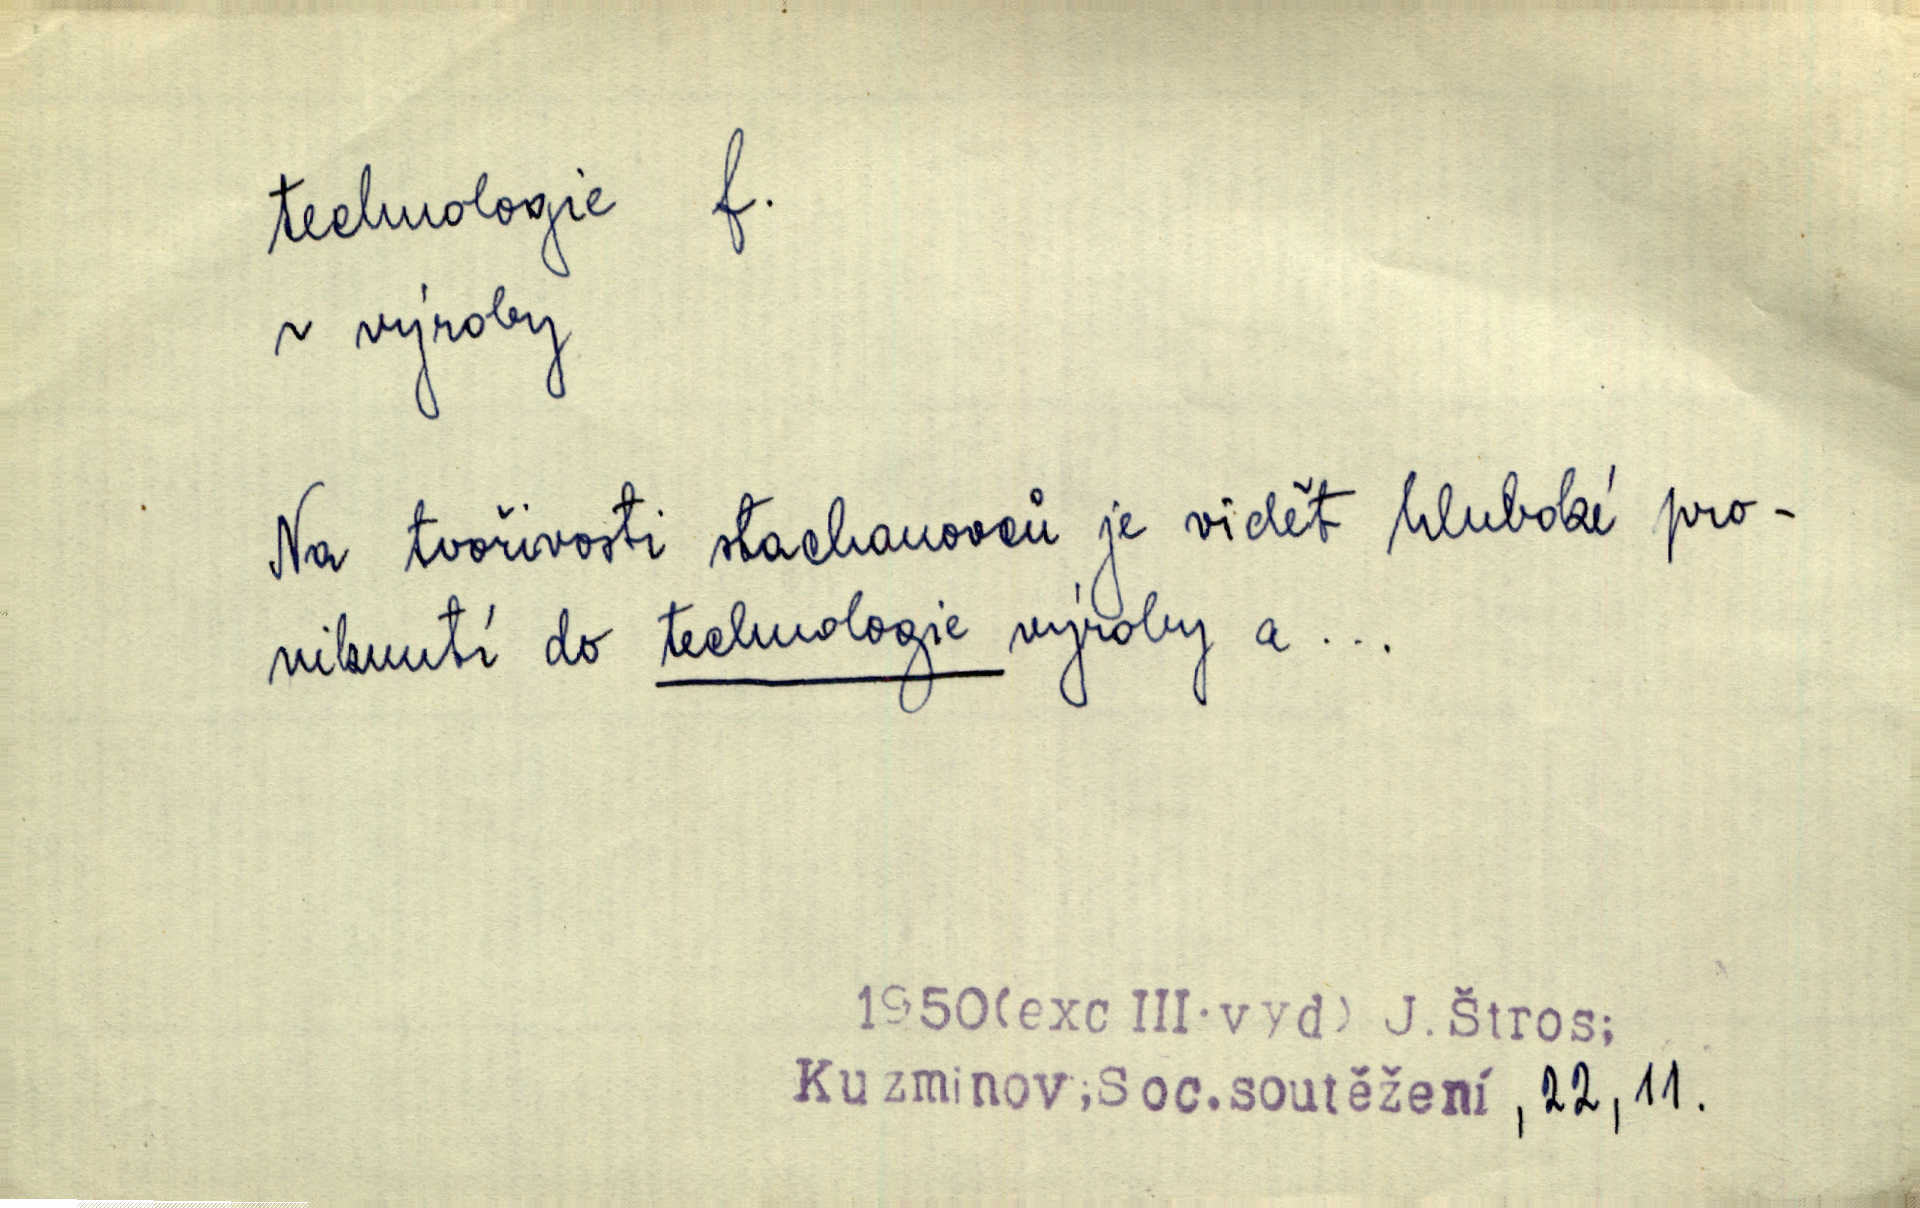 technologie f.
~ výroby
Na tvořivosti stachanovců je vidět hluboké pro-
niknutí do technologie výroby a ...
1950(exc III.vyd) J.Štros;
Kuzminov;Soc.soutěžení, 22, 11.